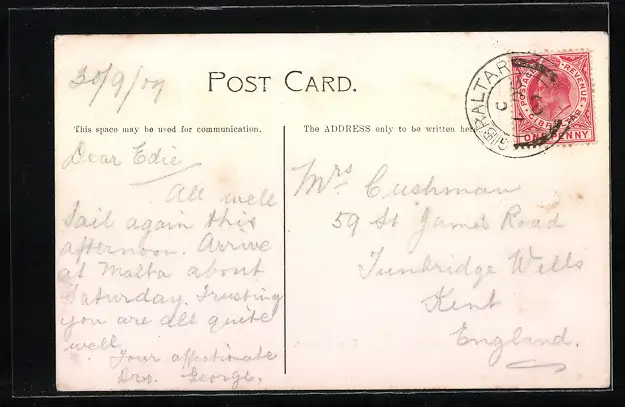 30/9/07
POST CARD.
This space may be used for communication.
The ADDRESS only to be written here
GIBRALTAR
POSTAGE & REVENUE
GIBRALTAR
ONE PENNY
Dear Edie
All well
Sail again this
afternoon. Arrive
at Malta about
Saturday. Trusting
you are all quite
well
Your affectionate
Bro. George.
Mrs Cushman
59 St James Road
Tunbridge Wells
Kent
England.